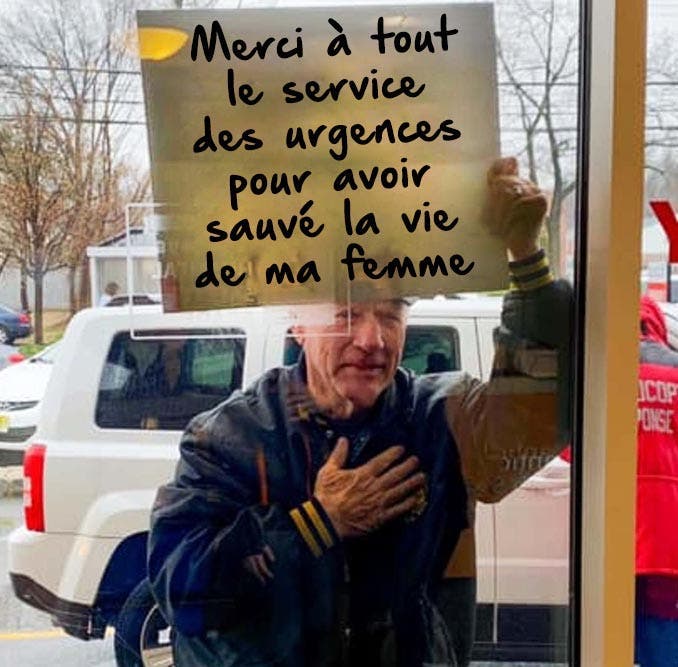 Merci à tout
le service
des urgences
pour avoir
sauvé la vie
de ma femme